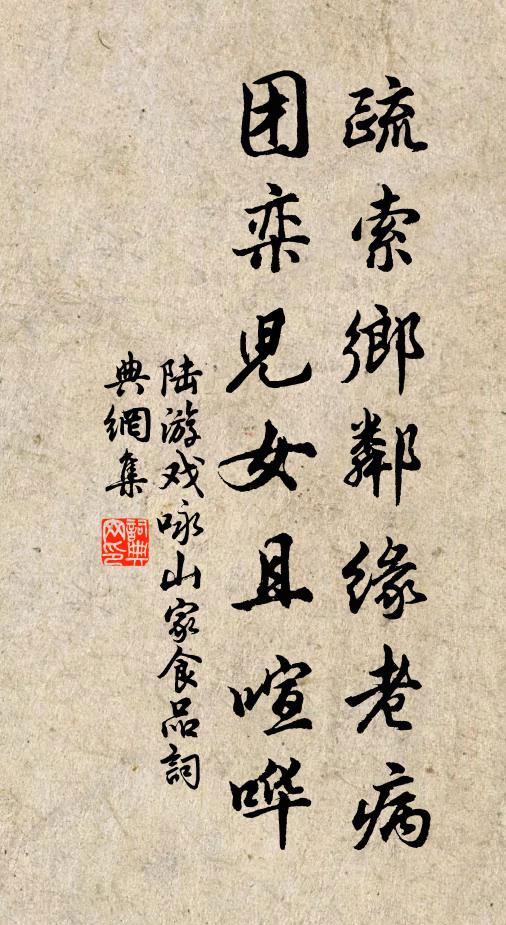 疏索鄉鄰緣老病
团栾兒女且喧哗
陆游戏咏山家食品詞
典網集
詞典網印